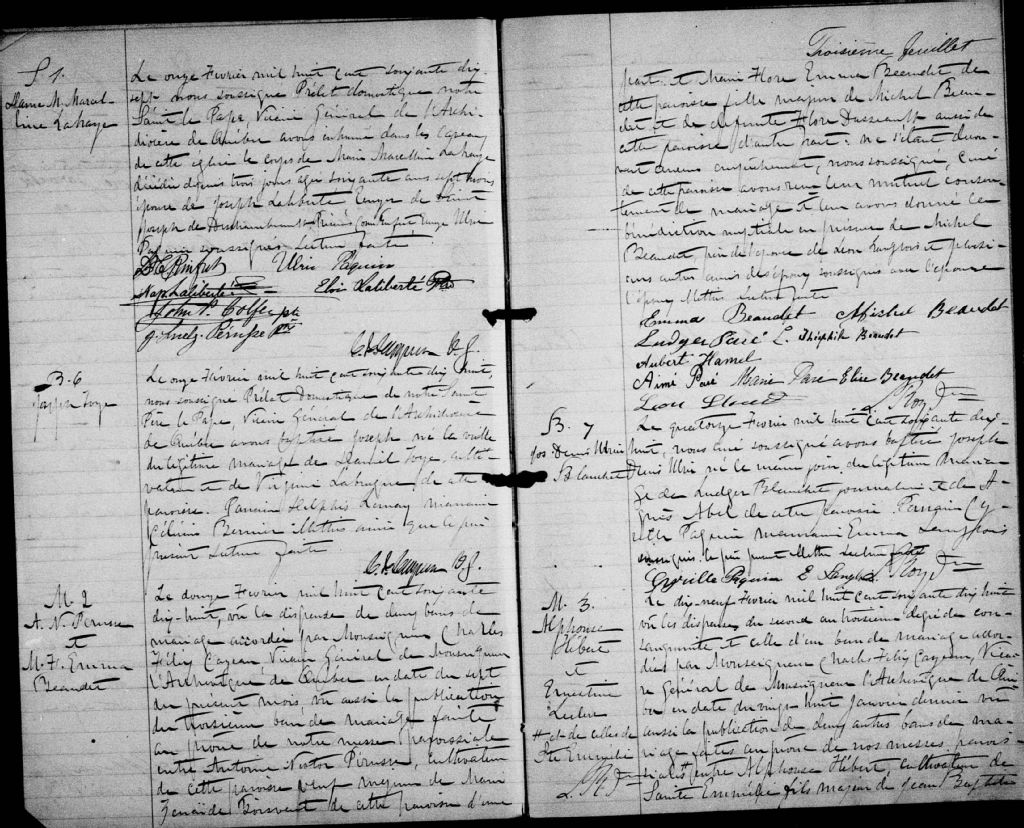 S 1.
Dame M. Marcel-
line Lahaye
Le onze Février mil huit cent soixante dix-
sept nous soussigné Prélat domestique notre
Saint le Pape Vicaire Général de l'Archi-
diocèse de Québec avons inhumé dans le caveau
de cette église le corps de Marie Marcelline Lahaye
décédée depuis trois jours agée soixante ans sept mois
épouse de Joseph Laliberté
Joseph de
Paquin soussignés Lecture faite.
Ulric Paquin
Nap Laliberté Eloi Laliberté Ptre
John P. Colfer ptr
V. G.
B. 6
Joseph
Le onze Février mil huit cent soixante dix huit,
nous soussigné Prélat Domestique de notre Saint
Père le Pape, Vicaire Général de l'Archidiocèse
de Québec avons baptisé Joseph né la veille
du légitime mariage de Damil culti-
vateur et de Virginie de cette
paroisse. Parrain Lemay marraine
Célina Bernier ainsi que le père
présent Lecture faite.
V. G.
M. 2
A. N. Perusse
et
M. Fl. Emma
Beaudet
Le douze Février mil huit cent soixante
dix-huit, vu la dispense de deux bans de
mariage accordée par Monseigneur Charles
Félix Cazeau Vicaire Général de Monseigneur
l'Archevêque de Québec en date du sept
du présent mois, vu aussi la publication
du troisième ban de mariage faite
au prône de notre messe paroissiale
entre Antoine Nestor Perusse, cultivateur
de cette paroisse veuf majeur de Marie
Zenaïde Boisvert de cette paroisse d'une
Troisième feuillet
part: et Marie Flore Emma Beaudet de
cette paroisse fille majeure de Michel Beau-
det et de défunte Flore Dusseault aussi de
cette paroisse d'autre part: ne s'étant décou-
vert aucun empêchement, nous soussigné, Curé
de cette paroisse avons reçu leur mutuel consen-
tement de mariage et leur avons donné la
bénédiction nuptiale en présence de Michel
Beaudet, père de l'épouse de Léon Langlois et plusi-
eurs autres amis des époux soussignés avec l'épouse
Lecture faite
Emma Beaudet Michel Beaudet
Ludger Paré L. Théophile Beaudet
Aubert Hamel
Aimé Paré Marie Paré Elise Beaudet
Leon
L. Roy Ptre
B. 7
Jos Denis Ulric
Blanchet
Le quatorze Février mil huit cent soixante dix-
huit, nous curé soussigné avons baptisé Joseph
Denis Ulric né le même jour du légitime maria-
ge de Ludger Blanchet journalier et de A-
gnès Abel de cette paroisse. Parrain Cy-
rille Paquin marraine Emma Langlois
soussignés le père présent Lecture faite
Cyrille Paquin E Langlois L. Roy Ptre
M. 3.
Alphonse
Hébert
et
Ernestine
Leclerc
# et de celles de
Ste Emmélie
L. R. Ptre
Le dix-neuf Février mil huit cent soixante dix huit
vu les dispenses du second au troisième degré de con-
sanguinité et celle d'un ban de mariage accor-
dées par Monseigneur Charles Félix Cazeau, Vicai-
re général de Monseigneur l'Archevêque de Qué-
bec en date du vingt huit Janvier dernier vu
aussi la publication de deux autres bans de ma-
riage faites au prone de nos messes parois-
siales # entre Alphonse Hébert cultivateur de
Sainte Emmélie fils majeur de Jean Baptiste